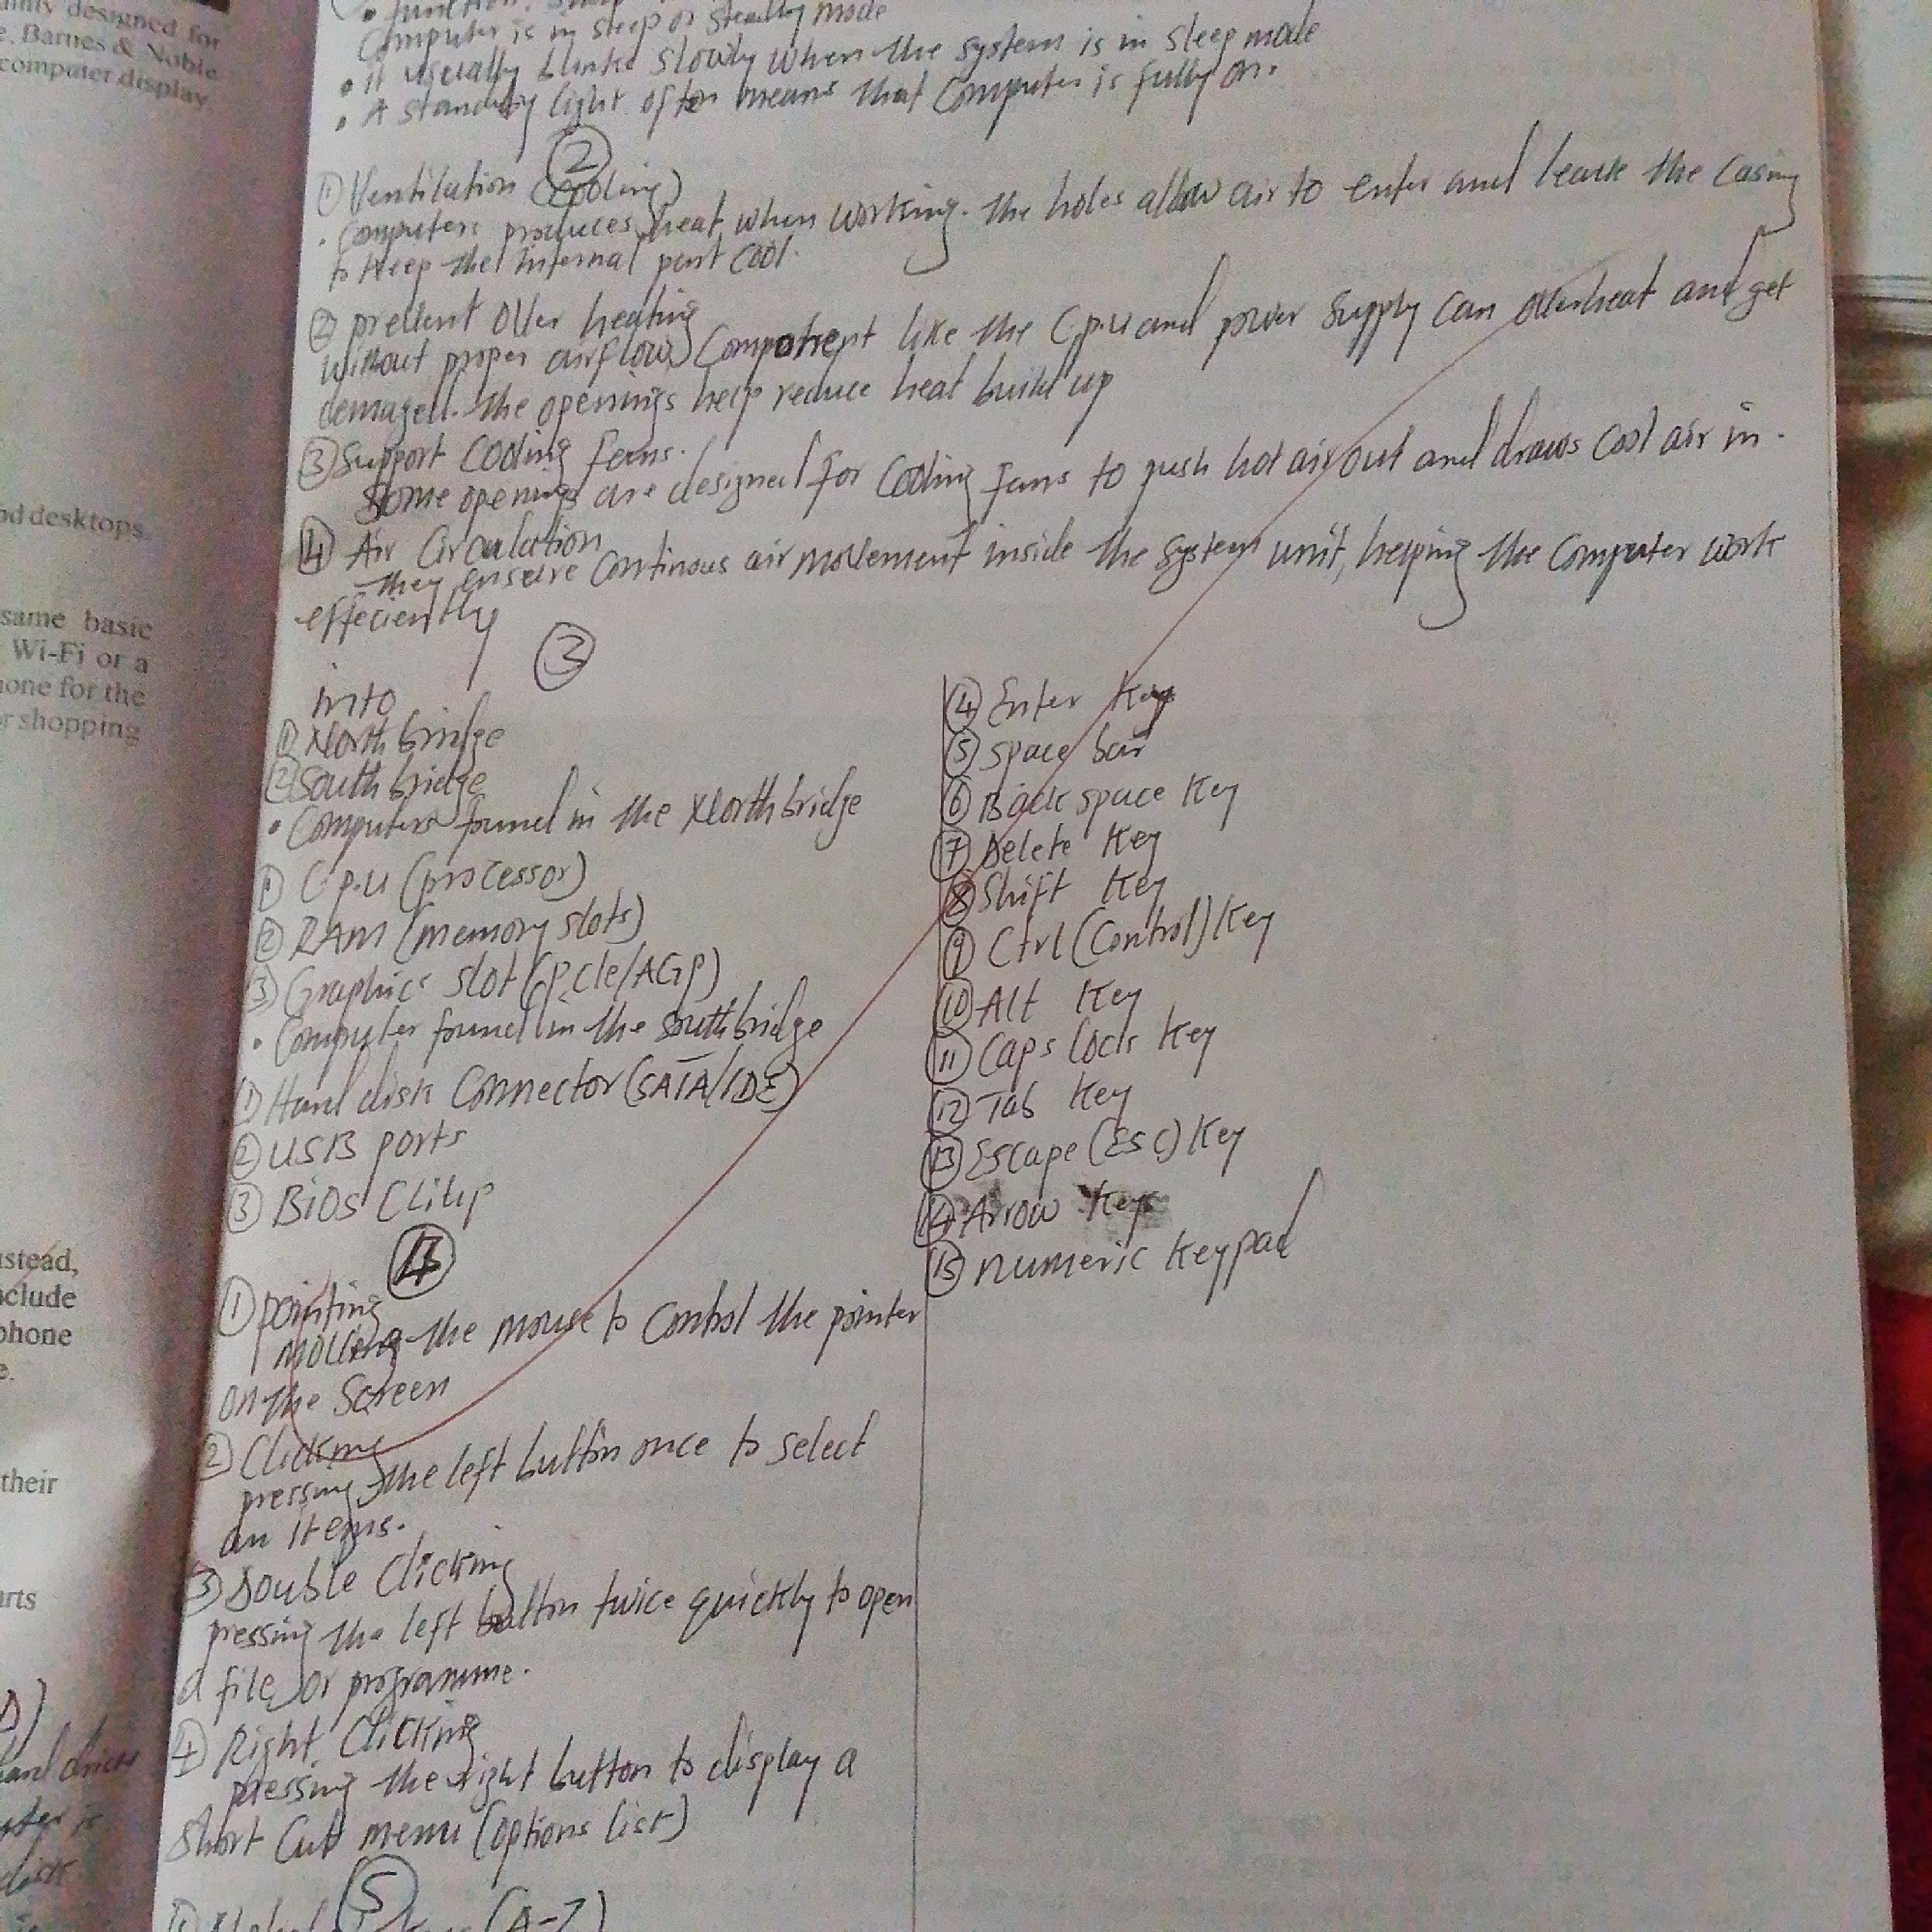 amly designed for
e, Barnes & Noble
computer display.
od desktops.
same basic
Wi-Fi or a
none for the
or shopping
nstead,
nclude
phone
e.
their
arts
Computer is in sleep or mode
• it usually blinks slowly when the system is in sleep mode
• A standby light often means that Computer is fully on.
②
① Ventilation (Cooling)
• Computers produces heat when working. The holes allow air to enter and leave the Casing
to keep the internal part Cool.
② prevent over heating
without proper airflow, Component like the C.p.u and power supply can overheat and get
demaged. The openings help reduce heat build up
③ Support Cooling fans.
Some openings are designed for Cooling fans to push hot air out and draws Cool air in.
④ Air Circulation
They ensure Continous air movement inside the System unit, helping the Computer work
effeciently
③
into
① North bridge
② South bridge
• Computers found in the North bridge
① C.p.u (processor)
② RAM (memory slots)
③ Graphics slot (pcle/AGP)
• Computer found in the south bridge
① Hard disk Connector (SATA/IDE)
② USB ports
③ BiOS Clitip
④
① pointing
moving the mouse to Control the pointer
on the Screen
② Clicking
pressing the left button once to select
an items.
③ Double Clicking
pressing the left button twice quickly to open
a file or programme.
④ Right Clicking
pressing the right button to display a
Short Cut menu (options list)
⑤
(A-Z)
④ Enter Key
⑤ Space bar
⑥ Back space Key
⑦ Delete Key
⑧ Shift Key
⑨ Ctrl (Control) Key
⑩ Alt Key
⑪ Caps lock Key
⑫ Tab Key
⑬ Escape (Esc) Key
⑭ Arrow Keys
⑮ numeric keypad